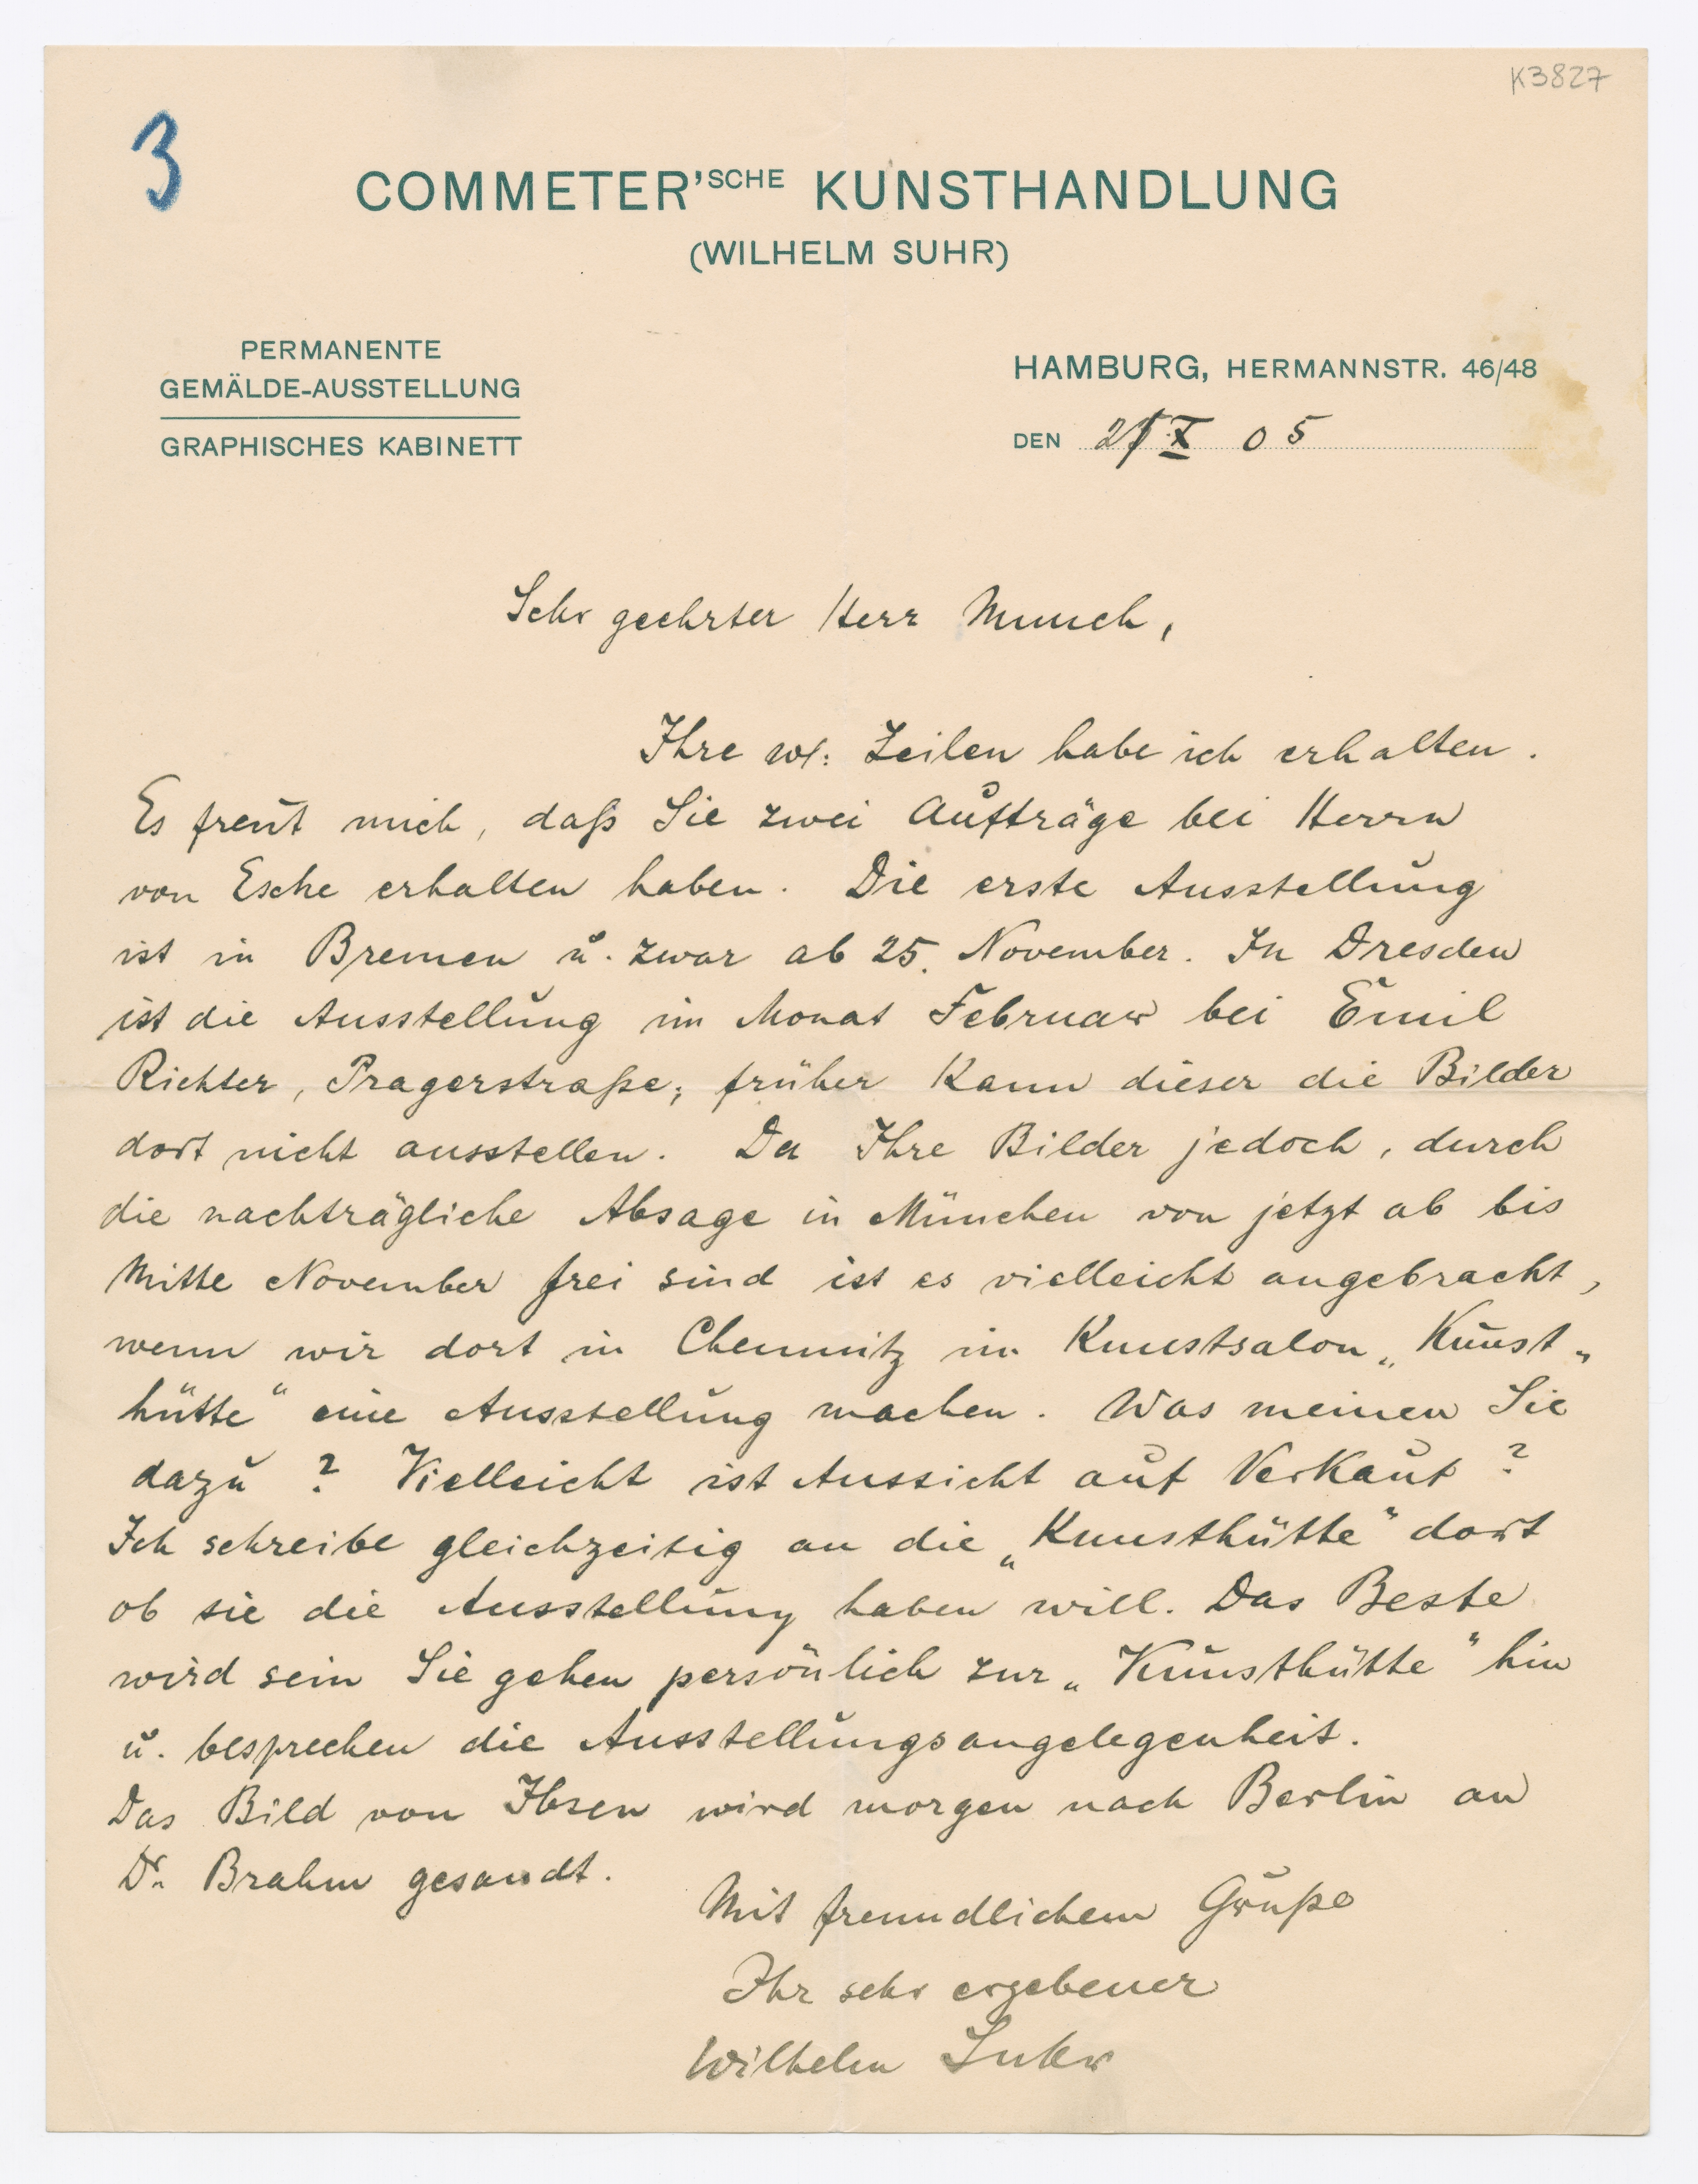 K3827
3
COMMETER'SCHE KUNSTHANDLUNG
(WILHELM SUHR)
PERMANENTE
GEMÄLDE-AUSSTELLUNG
GRAPHISCHES KABINETT
HAMBURG, HERMANNSTR. 46/48
DEN X 05
Sehr geehrter Herr Munch,
Ihre w. Zeilen habe ich erhalten.
Es freut mich, daß Sie zwei Aufträge bei Herrn
von Esche erhalten haben. Die erste Ausstellung
ist in Bremen u. zwar ab 25. November. In Dresden
ist die Ausstellung im Monat Februar bei Emil
Richter, Pragerstraße; früher kann dieser die Bilder
dort nicht ausstellen. Da Ihre Bilder jedoch, durch
die nachträgliche Absage in München von jetzt ab bis
Mitte November frei sind ist es vielleicht angebracht,
wenn wir dort in Chemnitz im Kunstsalon „Kunst-
hütte“ eine Ausstellung machen. Was meinen Sie
dazu? Vielleicht ist Aussicht auf Verkauf?
Ich schreibe gleichzeitig an die „Kunsthütte“ dort
ob sie die Ausstellung haben will. Das Beste
wird sein Sie gehen persönlich zur „Kunsthütte“ hin
u. besprechen die Ausstellungsangelegenheit.
Das Bild von Ibsen wird morgen nach Berlin an
Dr. Brahm gesandt.
Mit freundlichem Gruße
Ihr sehr ergebener
Wilhelm Suhr